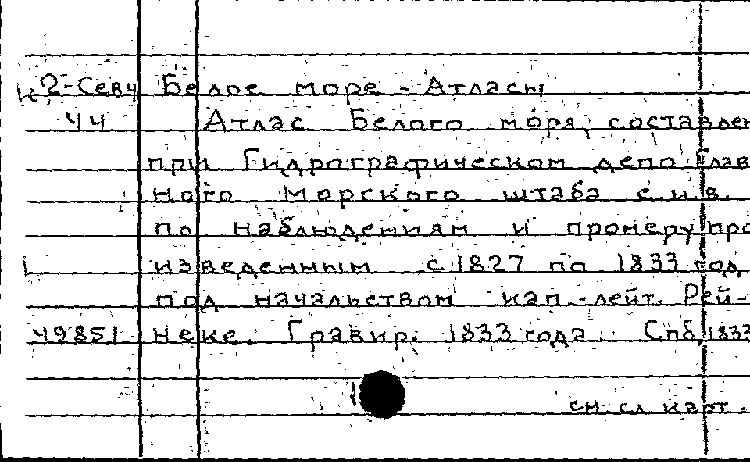 К2-Севч Белое море - Атласы
44 Атлас Белого моря, составлен
при Гидрографическом депо Глав
ного Морского штаба е.и.в.
по наблюдениям и промеру про
изведенным с 1827 по 1833 год
под начальством кап.-лейт. Рей-
49851 неке. Гравир. 1833 года. Спб, 1833
см. сл. карт.